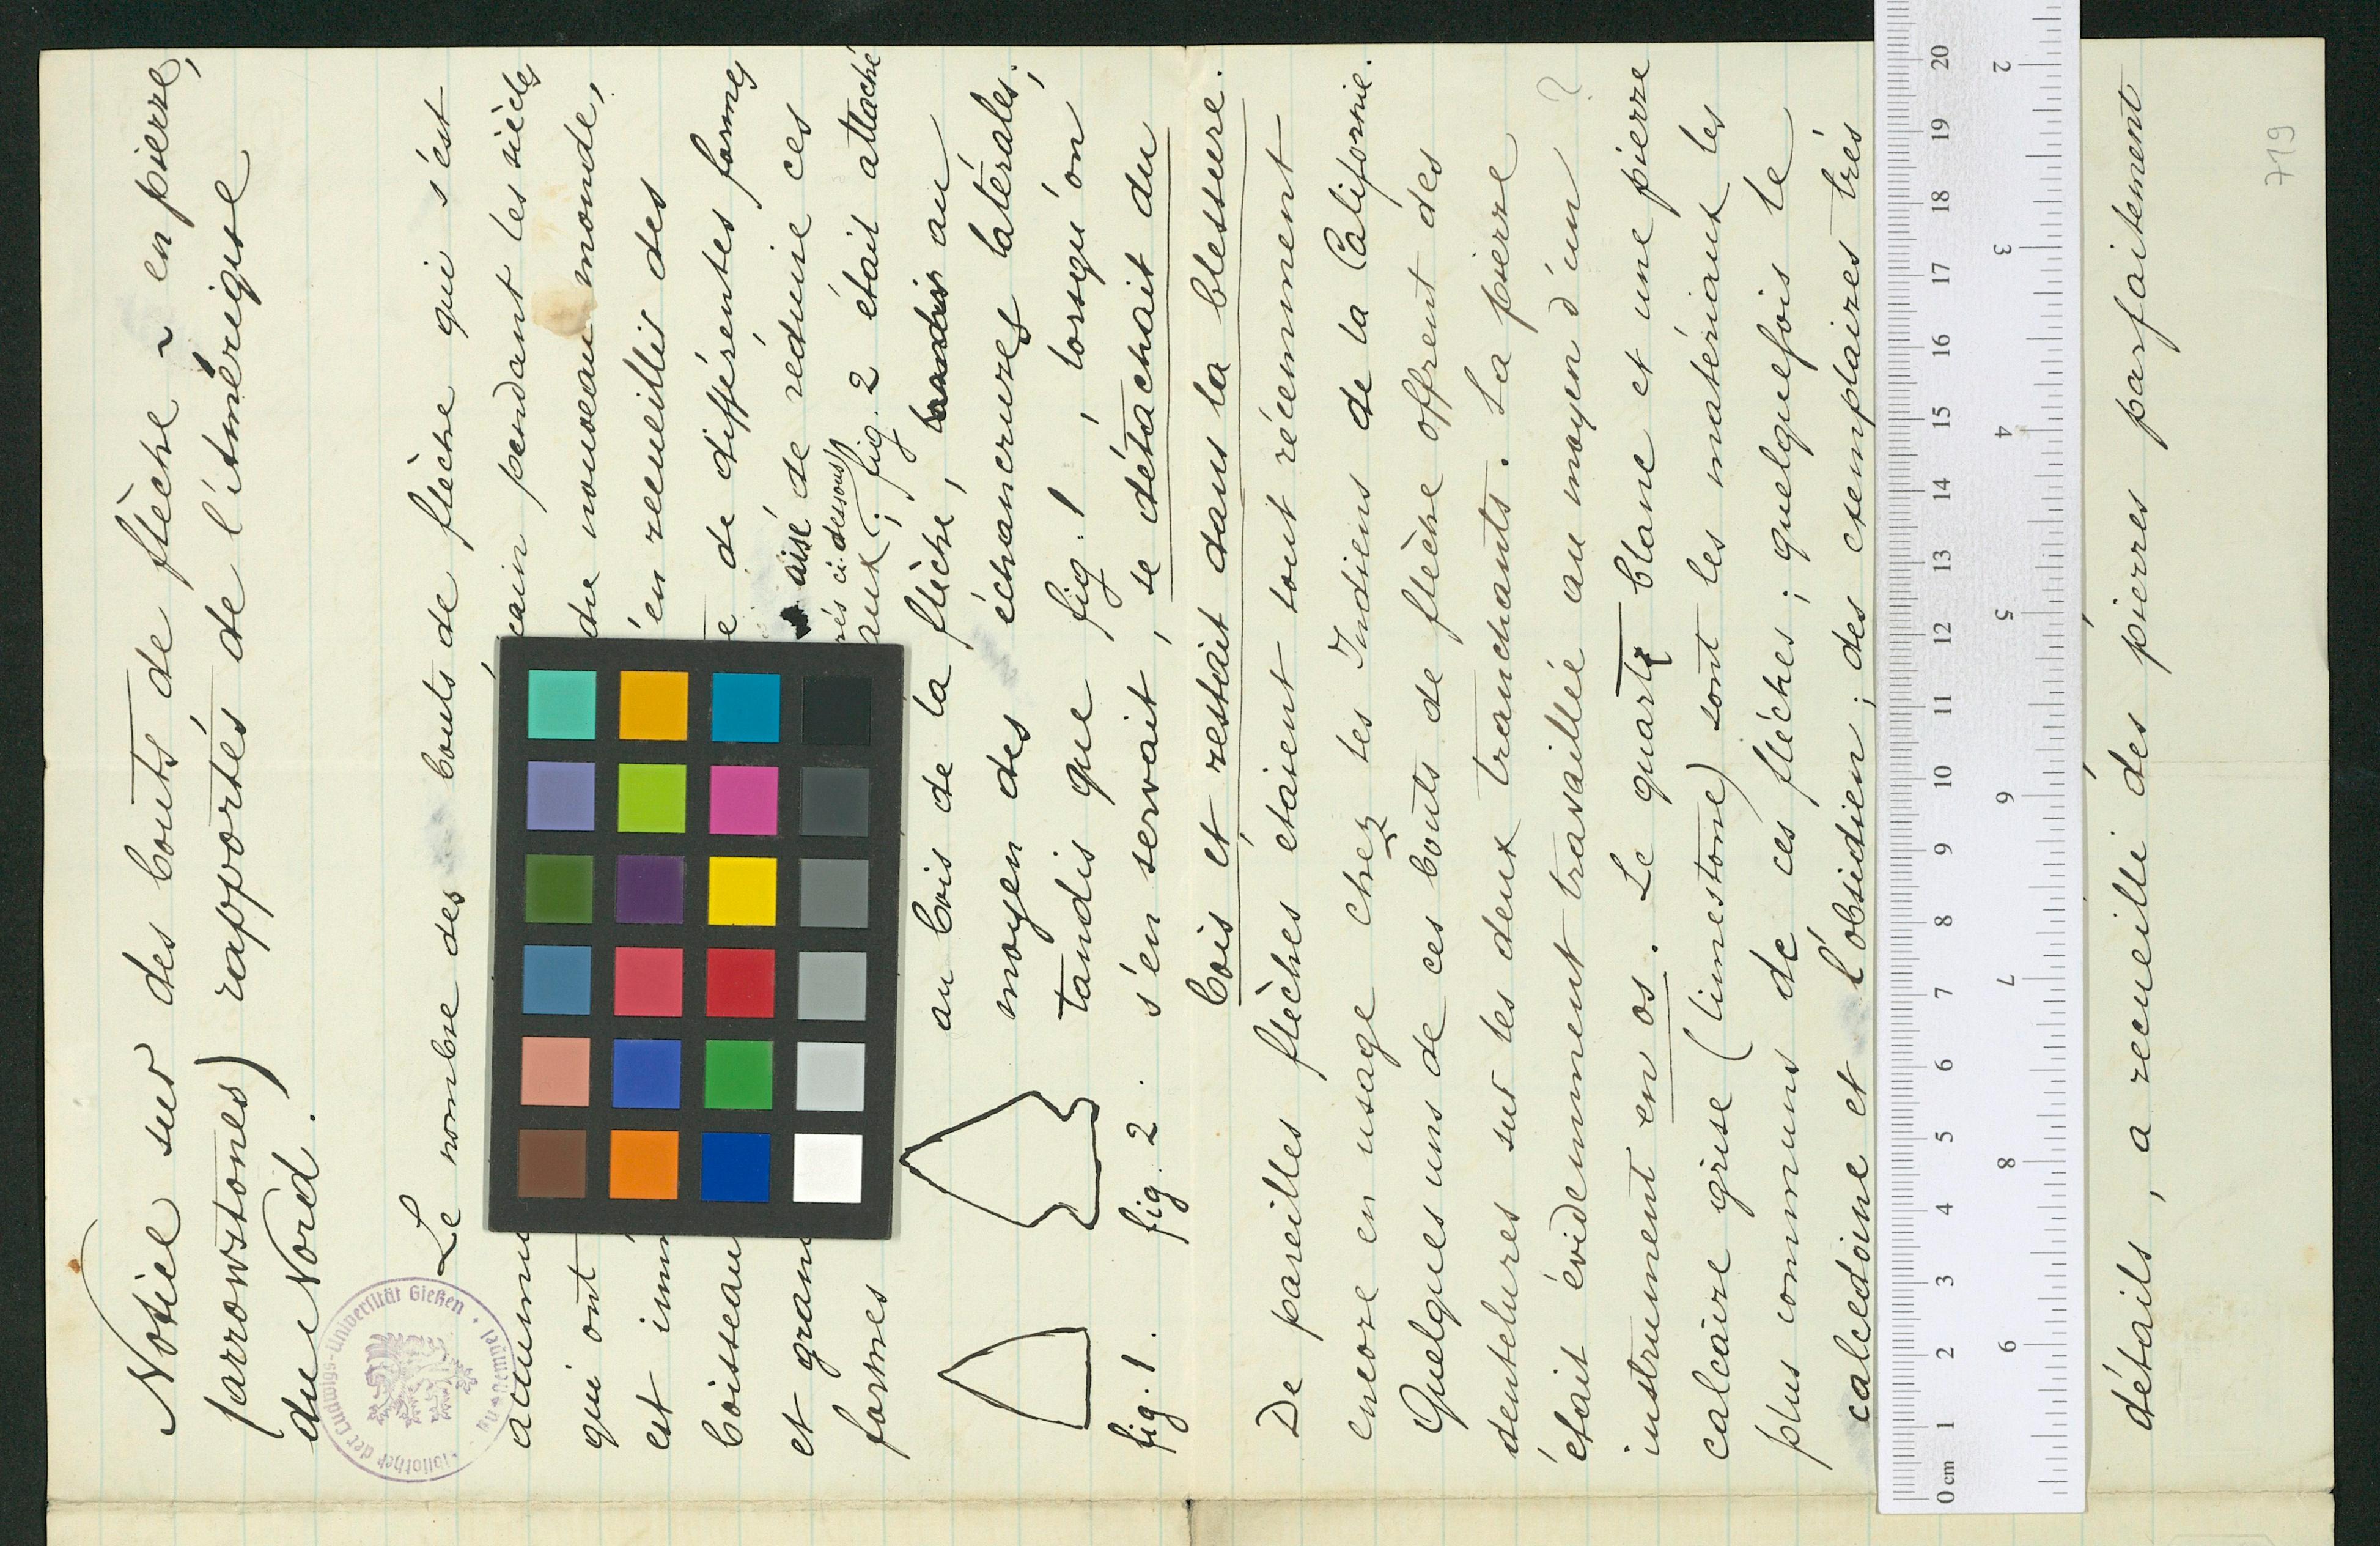 Notice sur des bouts de flèche ~ en pierre,
(arrowstones) rapportés de l'Amérique
du Nord.
Le nombre des bouts de flèche qui s'est
accumu cain pendant les siècles
qui ont du nouveau monde,
est imm en recueillir des
boisseau de différentes formes
et gran aisé de réduire ces
rés ci-dessous
formes aux (; fig. 2 était attaché
au bois de la flèche, au
moyen des échancrures latérales;
tandis que fig. 1, lorsqu'on
s'en servait, se détachait du
fig. 1. fig. 2.
bois et restait dans la blessure.
De pareilles flèches étaient tout récemment
encore en usage chez les Indiens de la Californie.
Quelques uns de ces bouts de flèche offrent des
dentelures sur les deux tranchants. La pierre
était évidemment travaillée au moyen d'un ?
instrument en os. Le quartz blanc et une pierre
calcaire grise (limestone) sont les matériaux les
plus communs de ces flèches; quelquefois le
calcédoine et l'obsidien; des exemplaires très
détails, a recueilli des pierres parfaitement
719
Bibliothek der Ludwigs-Universität Gießen
0 cm 1 2 3 4 5 6 7 8 9 10 11 12 13 14 15 16 17 18 19 20
2 3 4 5 6 7 8 9